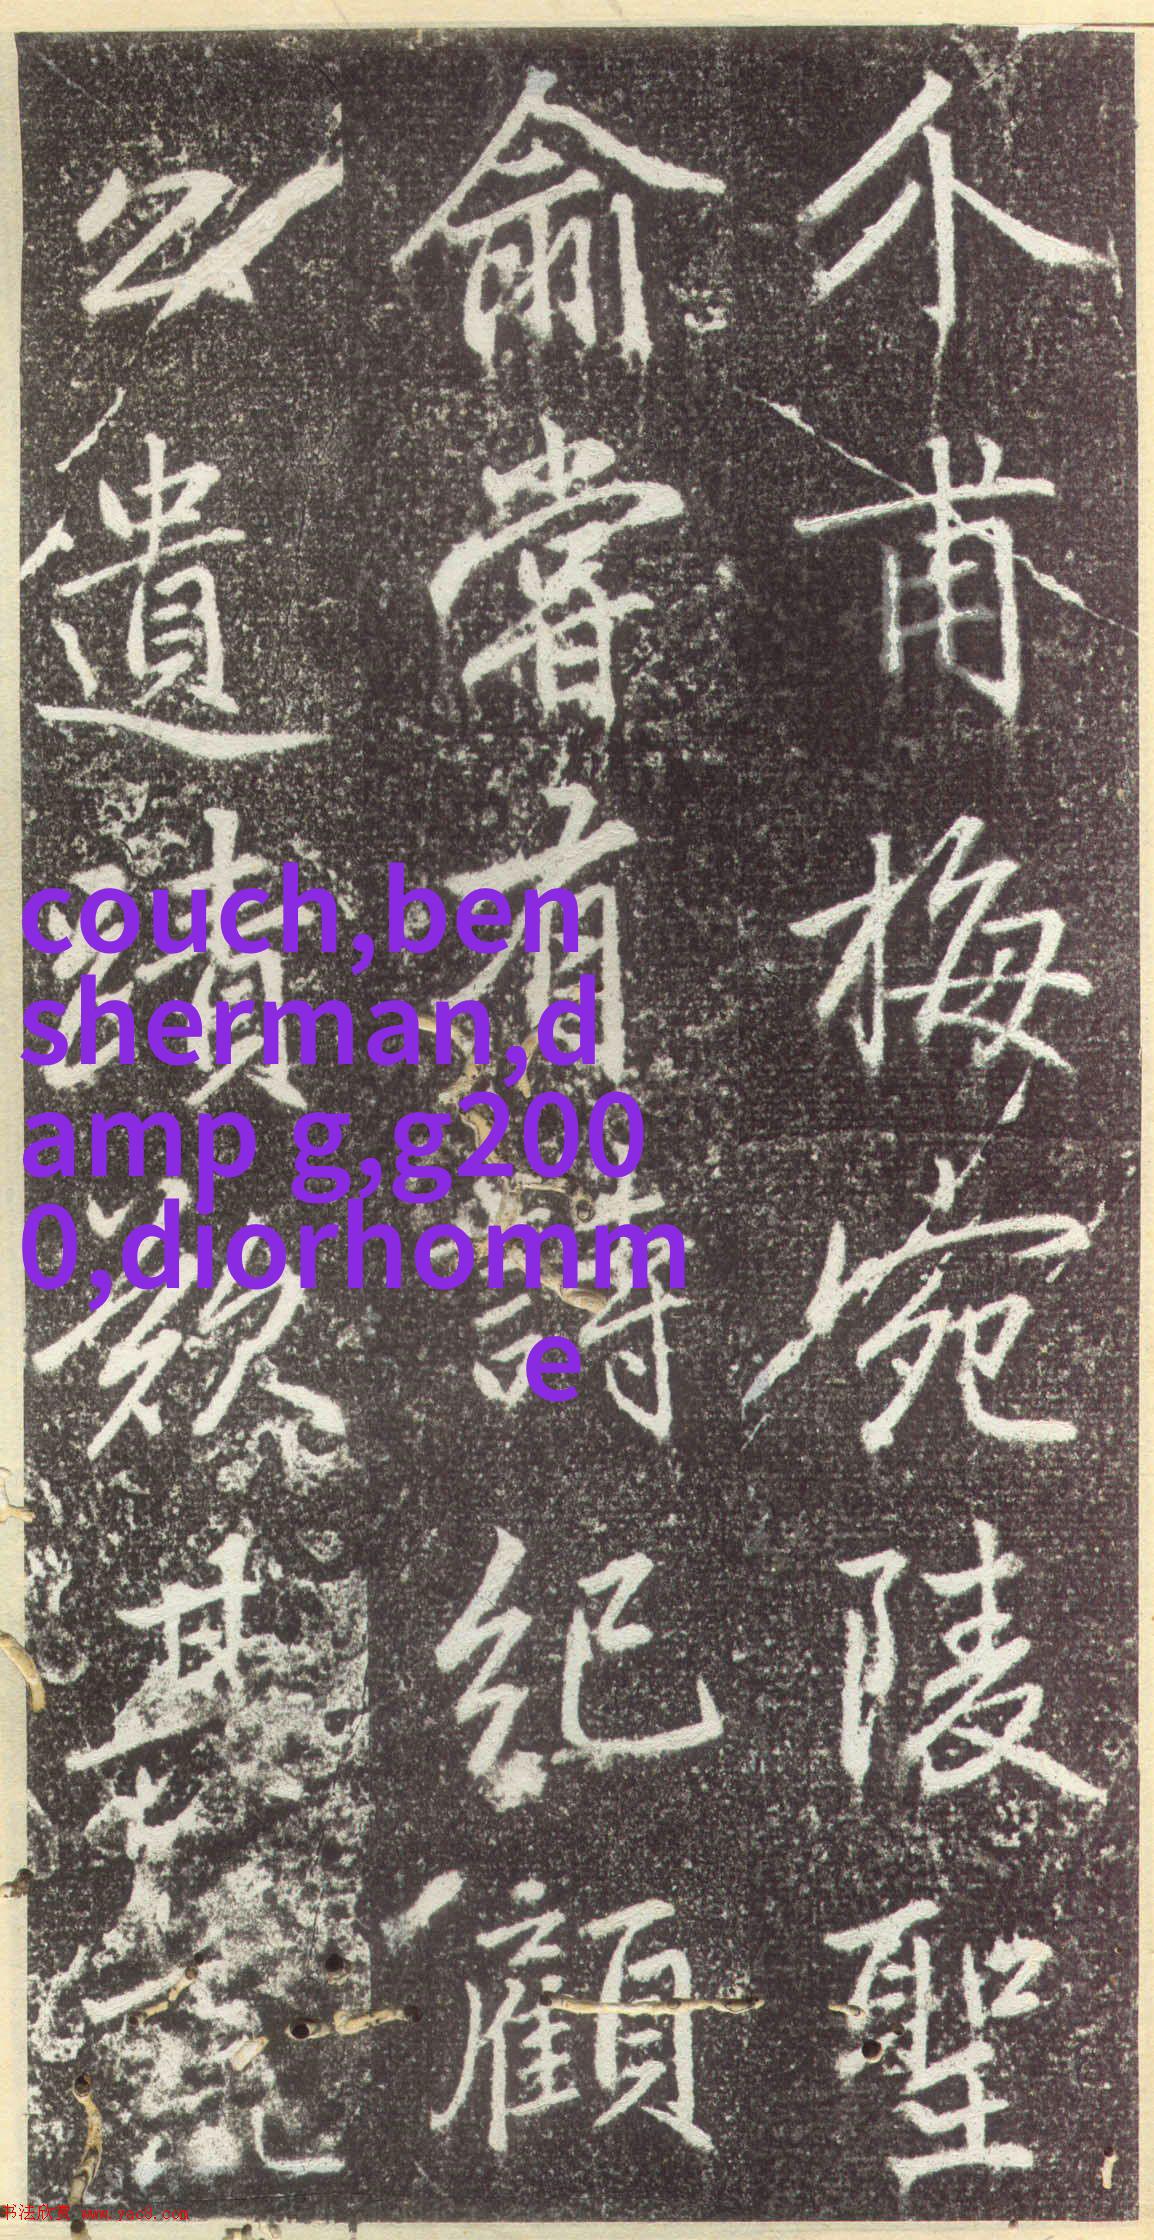 介甫梅宛陵聖
俞嘗有詩紀顧
公遺蹟歎其
couch,ben
sherman,d
amp g,g200
0,diorhomm
e
书法欣赏 www.yac8.com